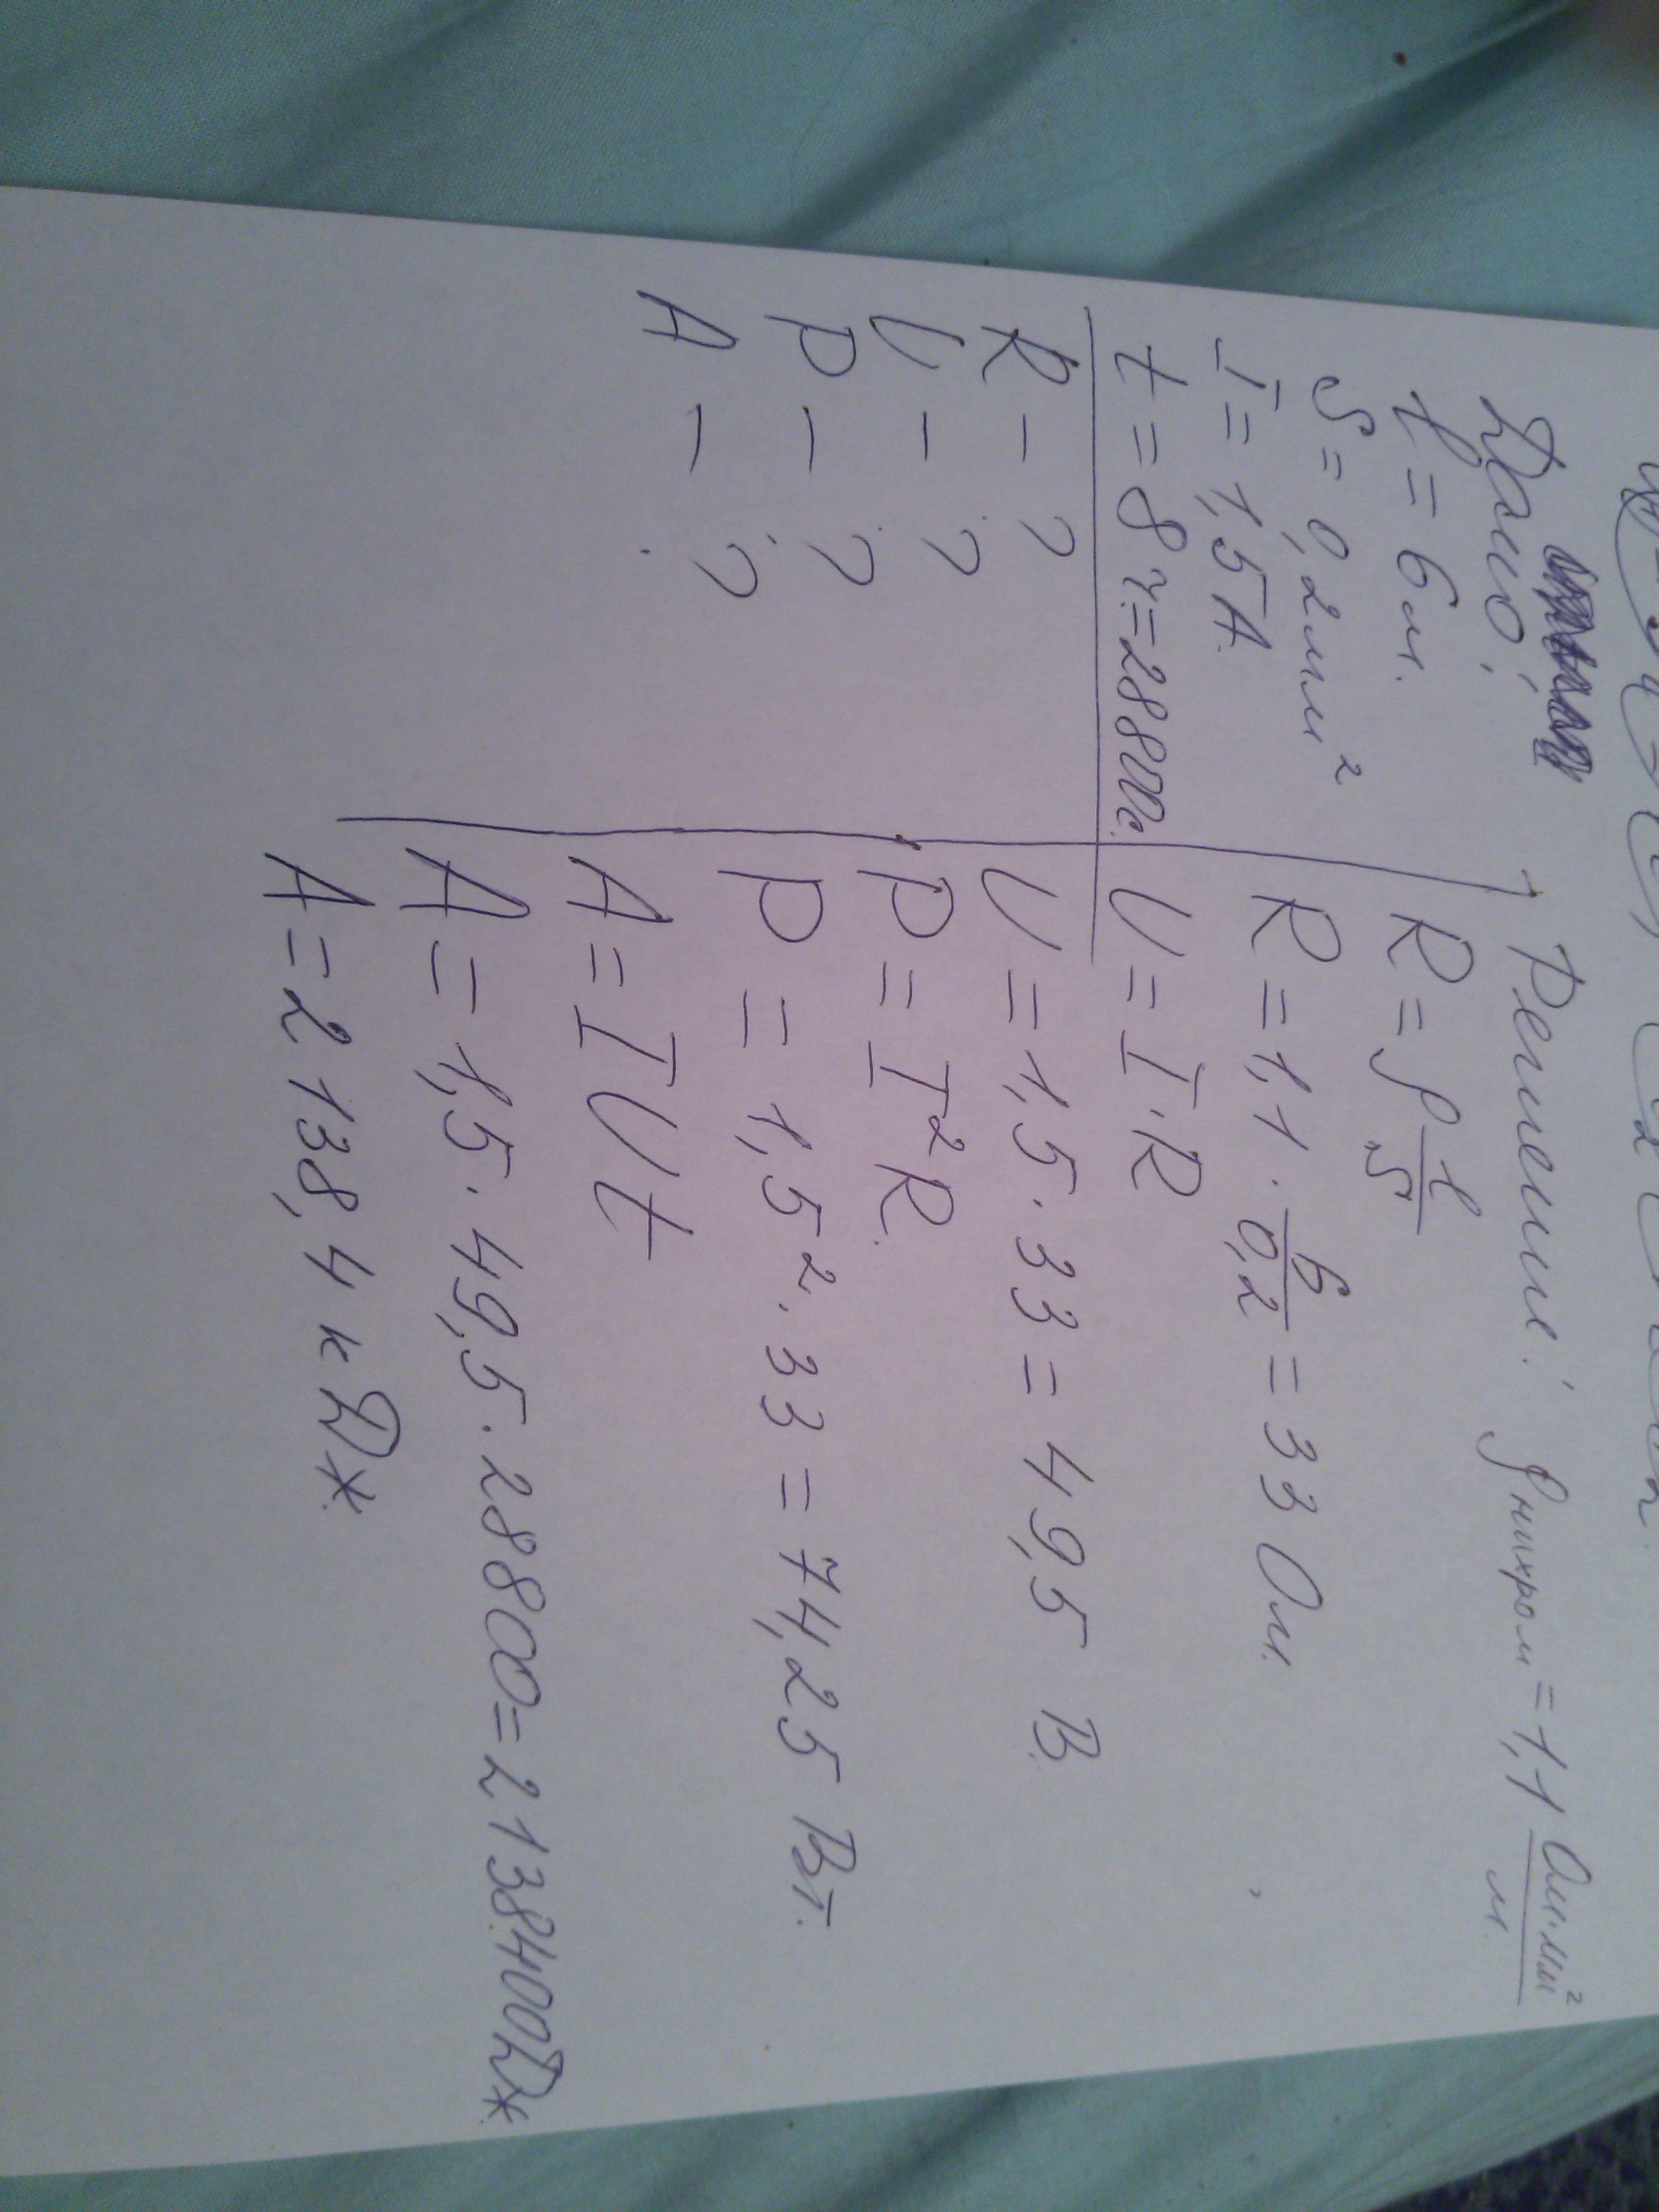 Дано:
l = 6 м.
S = 0,2 мм²
I = 1,5 А.
t = 8 ч. = 28800с.
R - ?
U - ?
P - ?
A - ?
Решение: ρнихром = 1,1 Ом.мм²/м.
R = ρ l/S
R = 1,1 · 6/0,2 = 33 Ом.
U = I · R
U = 1,5 · 33 = 49,5 В.
P = I²R.
P = 1,5² · 33 = 74,25 Вт.
A = IUt
A = 1,5 · 49,5 · 28800 = 2138400Дж.
A = 2138,4 кДж.